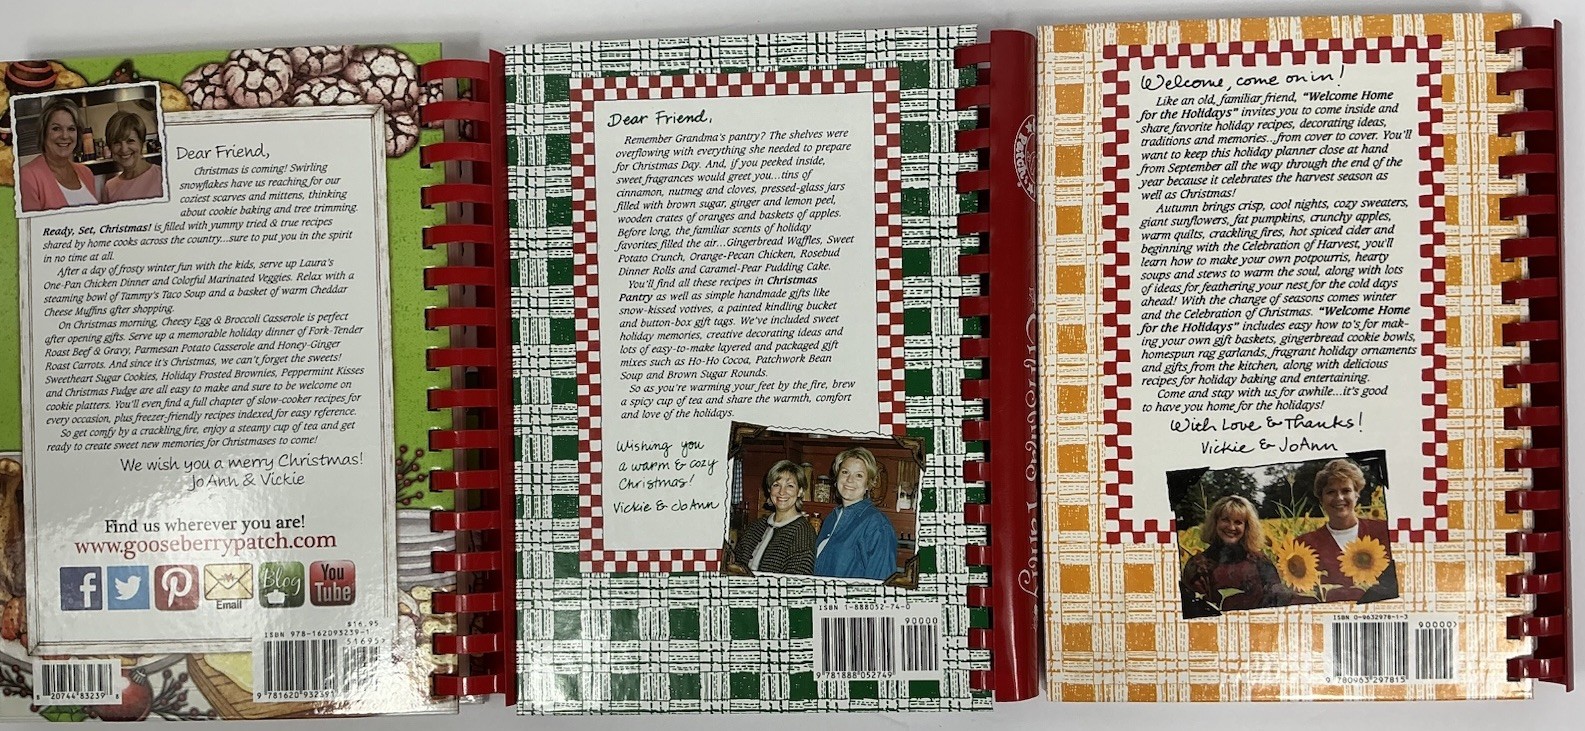 Dear Friend,
Christmas is coming! Swirling
snowflakes have us reaching for our
coziest scarves and mittens, thinking
about cookie baking and tree trimming.
Ready, Set, Christmas! is filled with yummy tried & true recipes
shared by home cooks across the country...sure to put you in the spirit
in no time at all.
After a day of frosty winter fun with the kids, serve up Laura's
One-Pan Chicken Dinner and Colorful Marinated Veggies. Relax with a
steaming bowl of Tammy's Taco Soup and a basket of warm Cheddar
Cheese Muffins after shopping.
On Christmas morning, Cheesy Egg & Broccoli Casserole is perfect
after opening gifts. Serve up a memorable holiday dinner of Fork-Tender
Roast Beef & Gravy, Parmesan Potato Casserole and Honey-Ginger
Roast Carrots. And since it's Christmas, we can't forget the sweets!
Sweetheart Sugar Cookies, Holiday Frosted Brownies, Peppermint Kisses
and Christmas Fudge are all easy to make and sure to be welcome on
cookie platters. You'll even find a full chapter of slow-cooker recipes for
every occasion, plus freezer-friendly recipes indexed for easy reference.
So get comfy by a crackling fire, enjoy a steamy cup of tea and get
ready to create sweet new memories for Christmases to come!
We wish you a merry Christmas!
JoAnn & Vickie
Find us wherever you are!
www.gooseberrypatch.com
Email
Blog
You
Tube
$16.95
ISBN 978-162093239-1
51695>
8 20744 83239 8
9 781620 932391
Dear Friend,
Remember Grandma's pantry? The shelves were
overflowing with everything she needed to prepare
for Christmas Day. And, if you peeked inside,
sweet fragrances would greet you...tins of
cinnamon, nutmeg and cloves, pressed-glass jars
filled with brown sugar, ginger and lemon peel,
wooden crates of oranges and baskets of apples.
Before long, the familiar scents of holiday
favorites filled the air...Gingerbread Waffles, Sweet
Potato Crunch, Orange-Pecan Chicken, Rosebud
Dinner Rolls and Caramel-Pear Pudding Cake.
You'll find all these recipes in Christmas
Pantry as well as simple handmade gifts like
snow-kissed votives, a painted kindling bucket
and button-box gift tags. We've included sweet
holiday memories, creative decorating ideas and
lots of easy-to-make layered and packaged gift
mixes such as Ho-Ho Cocoa, Patchwork Bean
Soup and Brown Sugar Rounds.
So as you're warming your feet by the fire, brew
a spicy cup of tea and share the warmth, comfort
and love of the holidays.
Wishing you
a warm & cozy
Christmas!
Vickie & JoAnn
ISBN 1-888052-74-0
90000
9 781888 052749
Christmas Pantry
Welcome, come on in!
Like an old, familiar friend, "Welcome Home
for the Holidays" invites you to come inside and
share favorite holiday recipes, decorating ideas,
traditions and memories...from cover to cover. You'll
want to keep this holiday planner close at hand
from September all the way through the end of the
year because it celebrates the harvest season as
well as Christmas!
Autumn brings crisp, cool nights, cozy sweaters,
giant sunflowers, fat pumpkins, crunchy apples,
warm quilts, crackling fires, hot spiced cider and
beginning with the Celebration of Harvest, you'll
learn how to make your own potpourris, hearty
soups and stews to warm the soul, along with lots
of ideas for feathering your nest for the cold days
ahead! With the change of seasons comes winter
and the Celebration of Christmas. "Welcome Home
for the Holidays" includes easy how to's for mak-
ing your own gift baskets, gingerbread cookie bowls,
homespun rag garlands, fragrant holiday ornaments
and gifts from the kitchen, along with delicious
recipes for holiday baking and entertaining.
Come and stay with us for awhile...it's good
to have you home for the holidays!
With Love & Thanks!
Vickie & JoAnn
ISBN 0-9632978-1-3
90000>
9 780963 297815